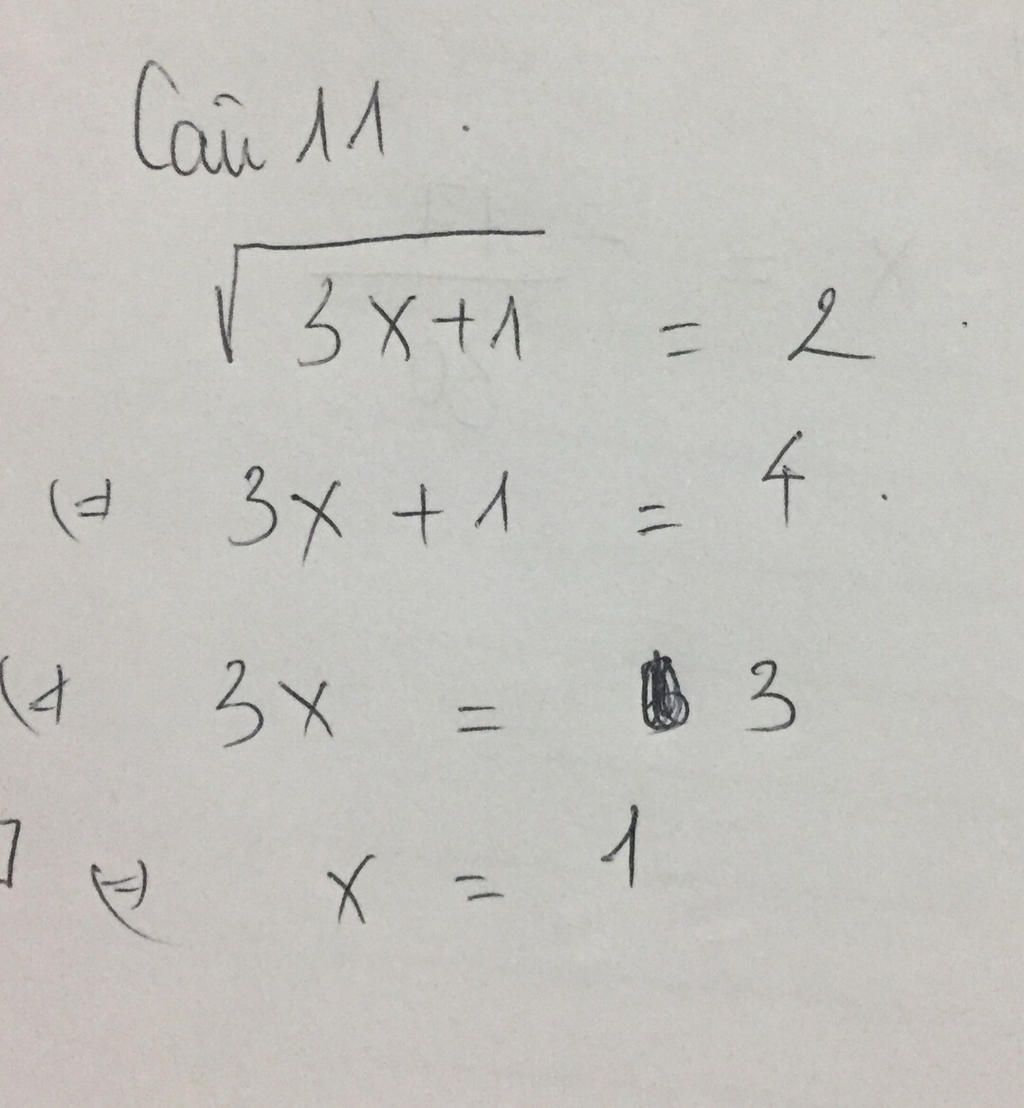 Câu 11.
√3x+1 = 2.
⇔ 3x + 1 = 4.
⇔ 3x = 3
⇔ x = 1